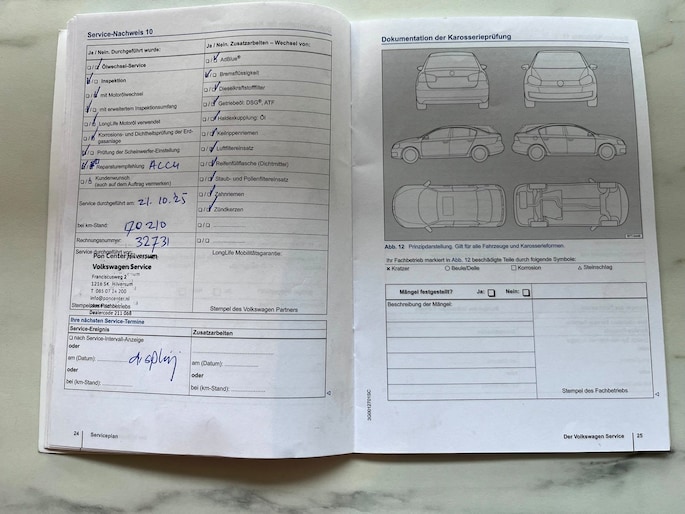 Service-Nachweis 10
Ja / Nein. Durchgeführt wurde:
□/□ Ölwechsel-Service
□/□ Inspektion
□/□ mit Motorölwechsel
□/□ mit erweitertem Inspektionsumfang
□/□ LongLife Motoröl verwendet
□/□ Korrosions- und Dichtheitsprüfung der Erdgasanlage
□/□ Prüfung der Scheinwerfer-Einstellung
Reparaturempfehlung ACCU
□/□ Kundenwunsch
(auch auf dem Auftrag vermerken)
Service durchgeführt am: 21.10.25
bei km-Stand: 170210
Rechnungsnummer: 32731
Service durchgeführt von:
Pon Center Hilversum
Volkswagen Service
Franciscusweg 2
1216 SK Hilversum
T. 085 07 14 200
info@poncenter.nl
Dealercode 211 068
Ja / Nein. Zusatzarbeiten – Wechsel von:
□/□ AdBlue®
□/□ Bremsflüssigkeit
□/□ Dieselkraftstofffilter
□/□ Getriebeöl: DSG®, ATP
□/□ Haldexkupplung: Öl
□/□ Keilrippenriemen
□/□ Luftfiltereinsatz
□/□ Reifenfüllflasche (Dichtmittel)
□/□ Staub- und Pollenfiltereinsatz
□/□ Zahnriemen
□/□ Zündkerzen
□/□
□/□
LongLife Mobilitätsgarantie:
Stempel des Volkswagen Partners
Ihre nächsten Service-Termine
Service-Ereignis
□ nach Service-Intervall-Anzeige
oder
am (Datum): display
oder
bei (km-Stand):
Zusatzarbeiten
am (Datum):
oder
bei (km-Stand):
24 | Serviceplan
Dokumentation der Karosserieprüfung
Abb. 12 Prinzipdarstellung. Gilt für alle Fahrzeuge und Karosserieformen.
Ihr Fachbetrieb markiert in Abb. 12 beschädigte Teile durch folgende Symbole:
× Kratzer ○ Beule/Delle □ Korrosion △ Steinschlag
Mängel festgestellt? Ja: □ Nein: □
Beschreibung der Mängel:
Stempel des Fachbetriebs
3G0012701SC
Der Volkswagen Service | 25